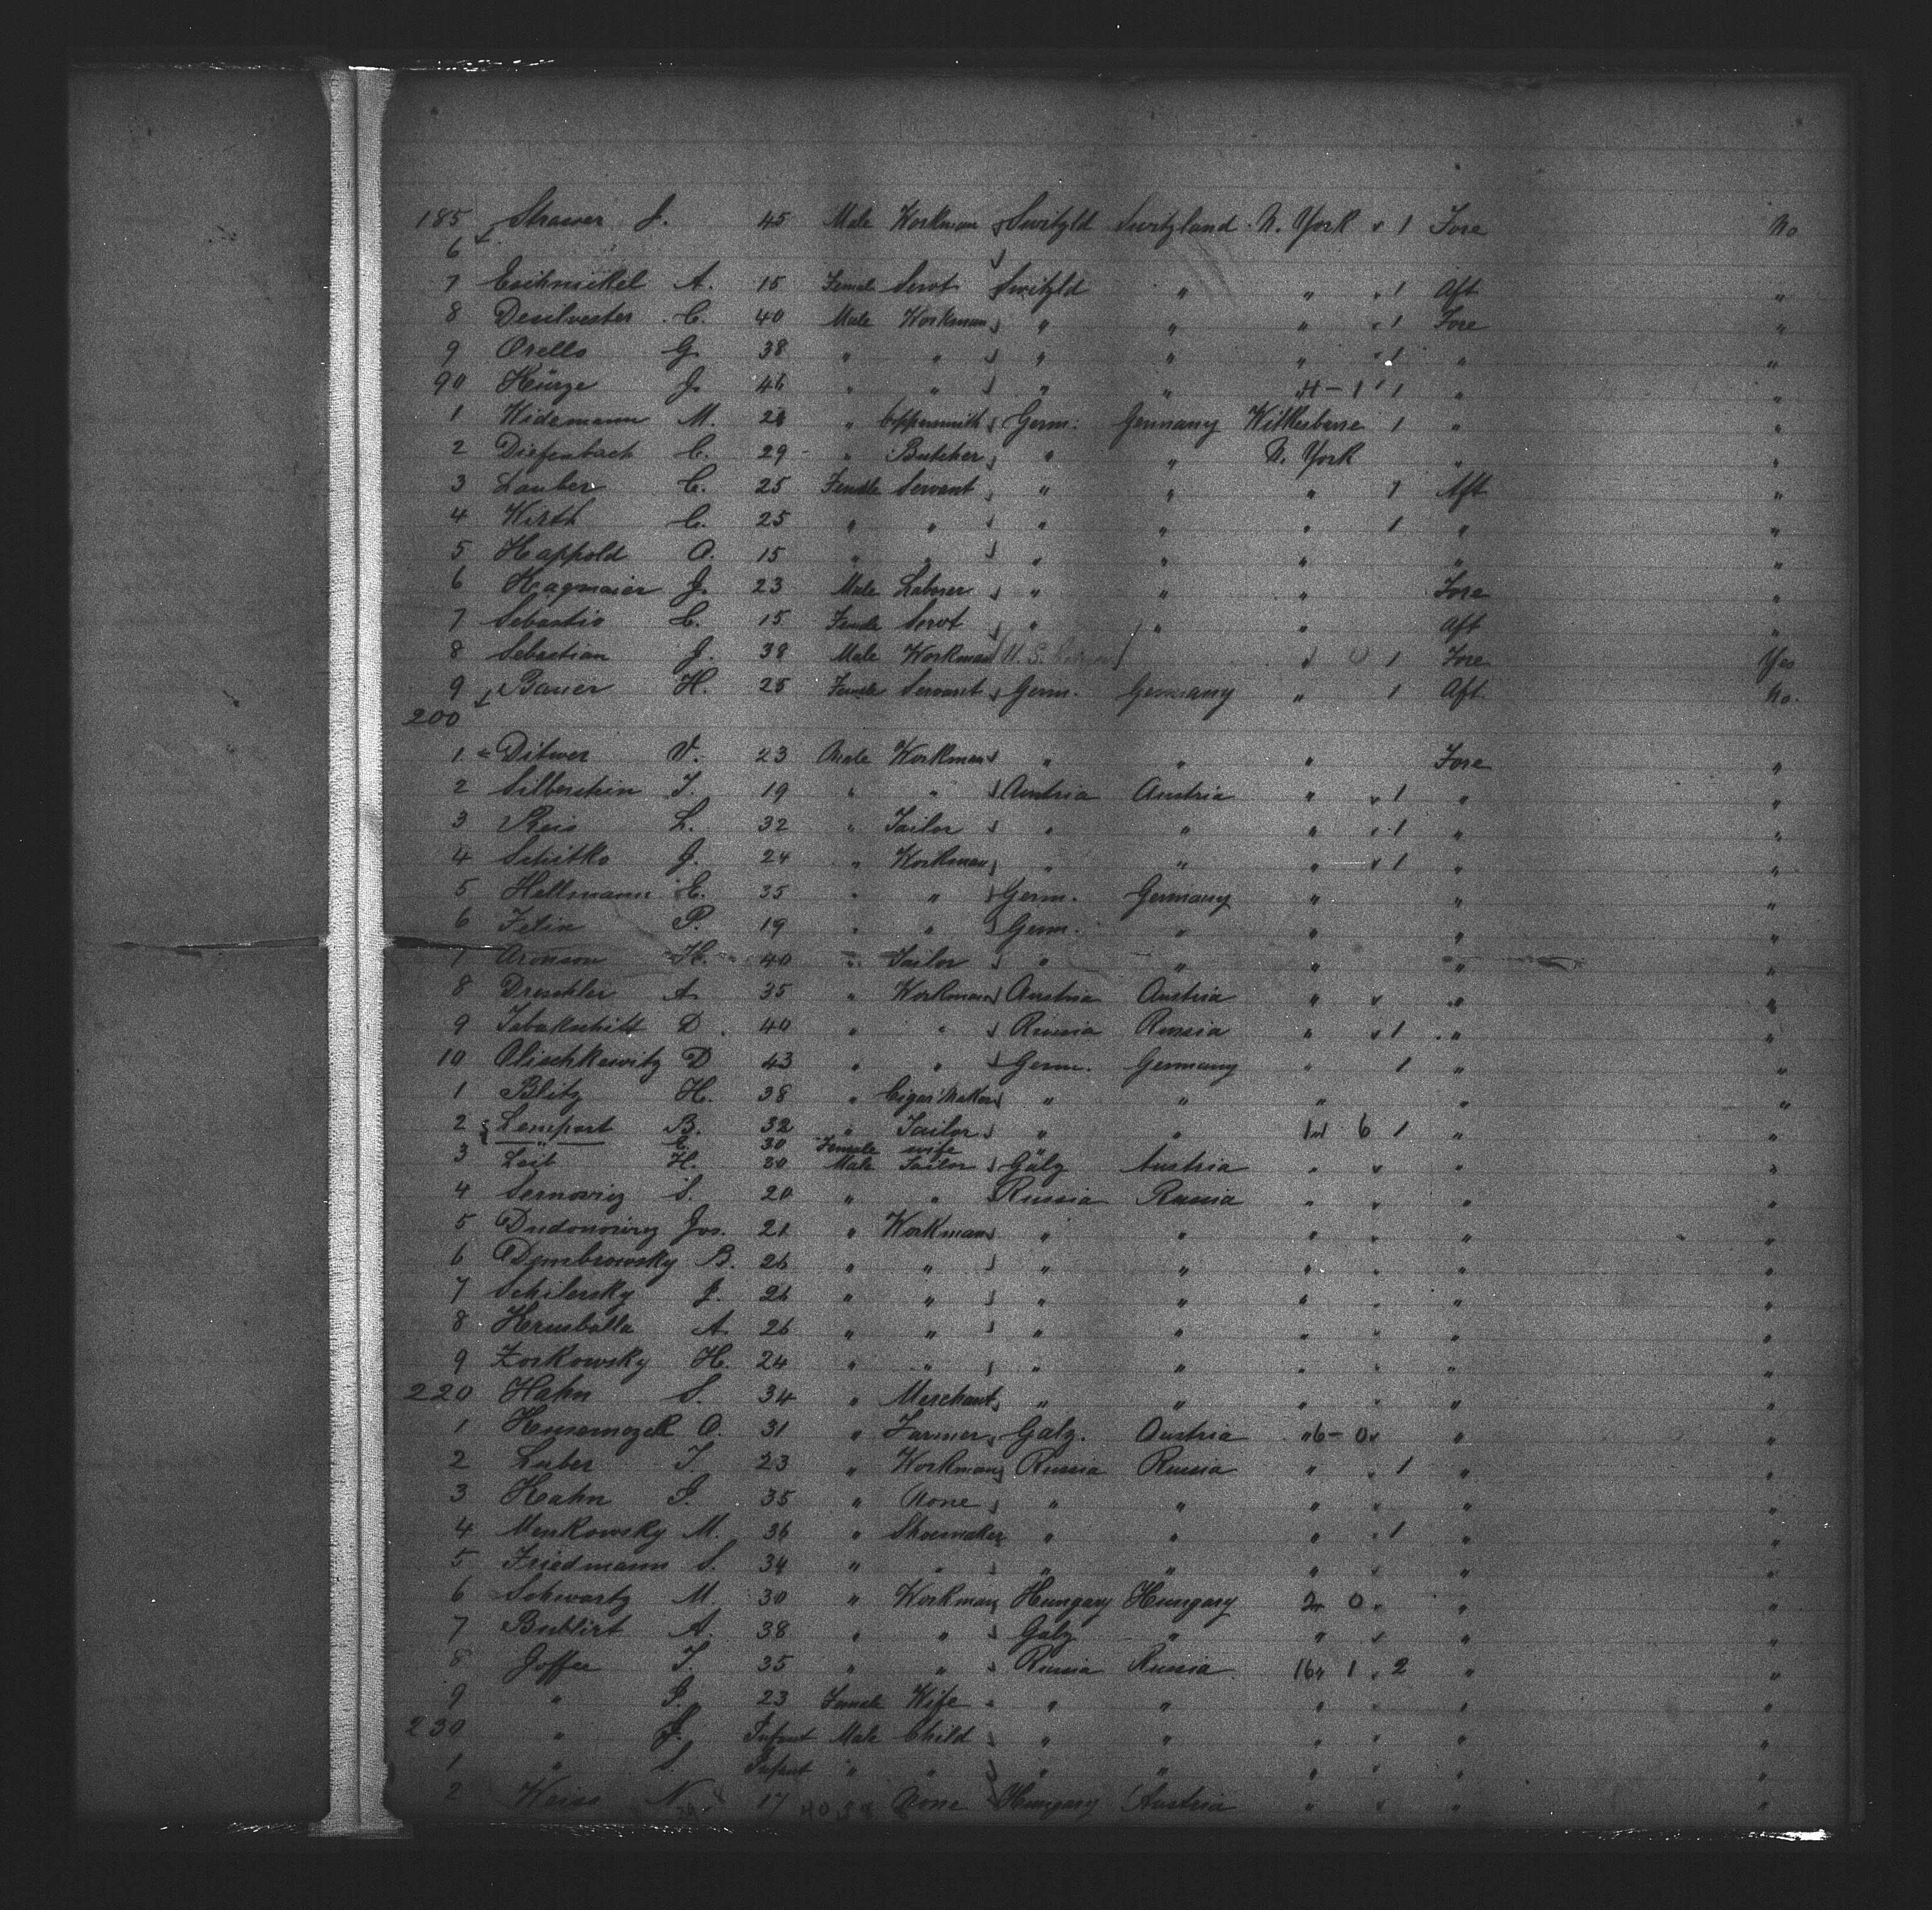 185 Strasser J. 45 Male Workman Switzld Switzland N. York " 1 Fore No
6
7 A. 15 Female Servt Switzld " " " 1 Aft "
8 Desilvester C. 40 Male Workman " " " " 1 Fore "
9 Orello G. 38 " " " " " " 1 " "
90 Künze J. 46 " " " " H - 1 " 1 " "
1 Widemann M. 28 " Coppersmith Germ: Germany Wilkesbarre 1 " "
2 Diefenbach C. 29 " Butcher " " N. York " "
3 Lauber C. 25 Female Servant " " " 1 Aft "
4 Wirth C. 25 " " " " " 1 " "
5 Happold O. 15 " " " " " " "
6 Hagmaier J. 23 Male Laborer " " " Fore "
7 Sebastio C. 15 Female Servt " " " Aft "
8 Sebastian J. 38 Male Workman U. S. 0 1 Fore Yes
9 Bauer H. 25 Female Servant Germ. Germany " 1 Aft No.
200
1 Ditwer V. 23 Male Workman " " " Fore "
2 Silberstein I. 19 " " Austria Austria " " 1 " "
3 Reis L. 32 " Tailor " " " " 1 " "
4 Schitko J. 24 " Workman " " " " 1 " "
5 Hellmann E. 35 " " Germ. Germany " " "
6 Felin P. 19 " " Germ. " " " "
7 Aronson H. 40 " Tailor " " " " "
8 Dreschler A. 35 " Workman Austria Austria " " " "
9 Tabakschitt D. 40 " " Russia Russia " " 1 " "
10 Olischkewitz D 43 " " Germ. Germany " 1 " "
1 Blitz H. 38 " Cigar Maker " " " " "
2 Lempart B. 32 " Tailor " " 6 1 " "
" C. 30 Female wife
3 Leib H. 30 Male Tailor Gälz Austria " " " "
4 Sernoviz S. 20 " " Russia Russia " " " "
5 Dudonowicz Jos. 21 " Workman " " " " " "
6 Dembrowsky B. 26 " " " " " " " "
7 Schilersky J. 26 " " " " " " " "
8 A. 26 " " " " " " " "
9 Zorkowsky H. 24 " " " " " " " "
220 Hahn S. 34 " Merchant " " " " " "
1 O. 31 " Farmer Galz. Austria " 6 - 0 " "
2 Luber I. 23 " Workman Russia Russia " " 1 " "
3 Hahn J. 35 " None " " " " " "
4 Menkowsky M. 36 " Shoemaker " " " " 1 " "
5 Friedmann S. 34 " " " " " " " "
6 Schwartz M. 30 " Workman Hungary Hungary 2 " 0 " " "
7 Bublirt A. 38 " " Galz " " " " "
8 Joffee I. 35 " " Russia Russia 16 " 1 " 2 " "
9 " J. 23 Female Wife " " " " " "
230 " J. Infant Male Child " " " " " "
1 " S. Infant " " " " " " " "
2 Weiss N. 17 None Hungary Austria " " " "